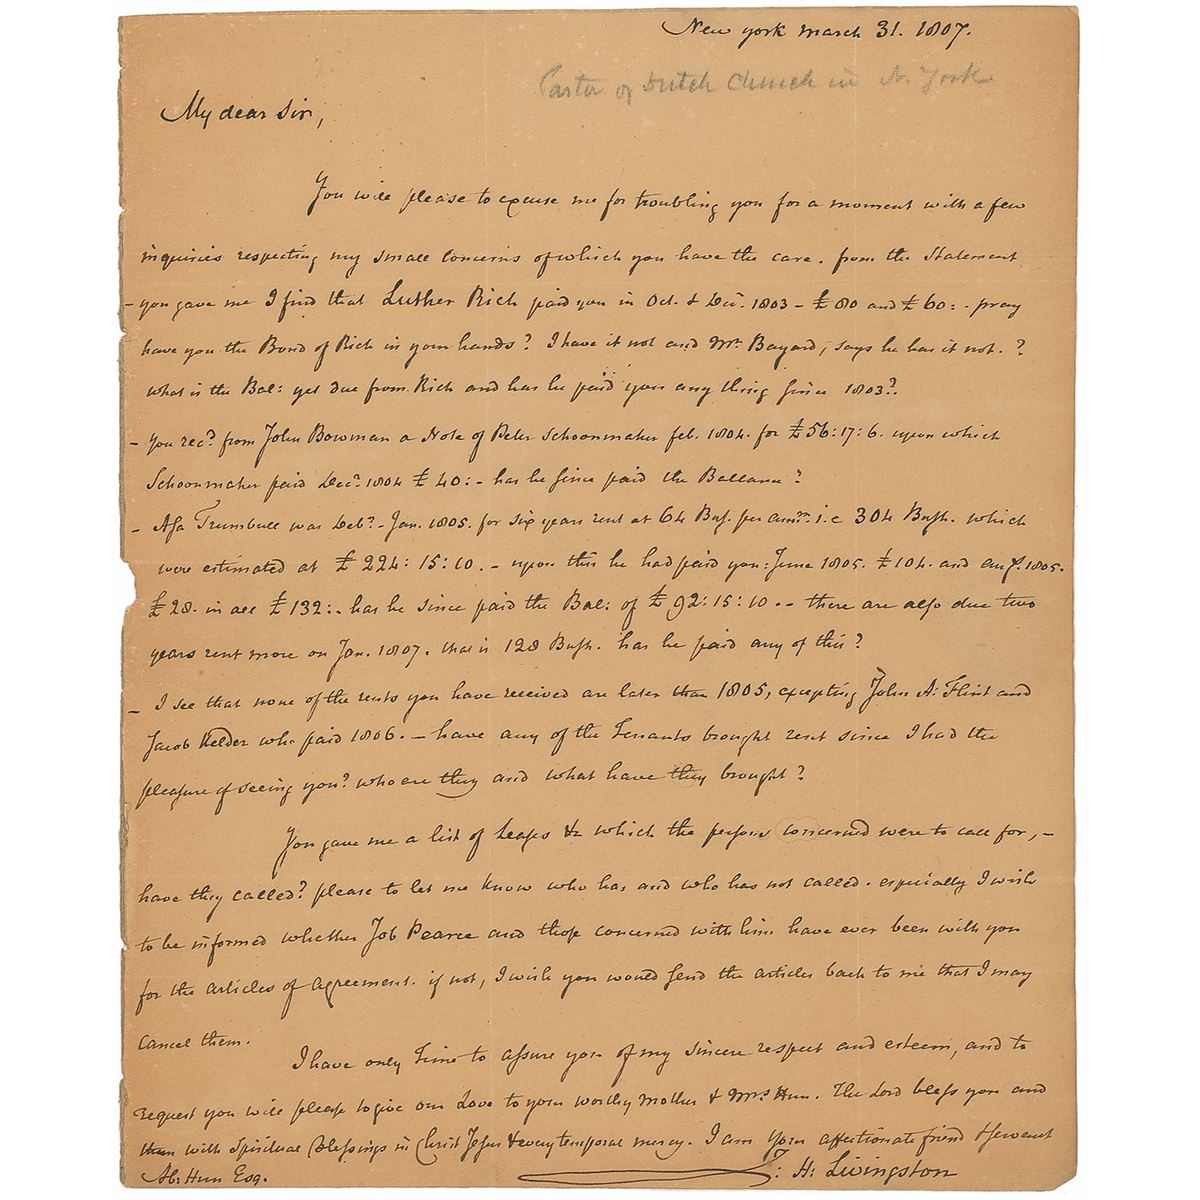 New York march 31. 1807.
Pastor of Dutch Church in N. York
My dear Sir,
You will please to excuse me for troubling you for a moment with a few
inquiries respecting my small concerns of which you have the care. from the Statement
- you gave me I find that Luther Rich paid you in Oct. & Decr. 1803 - £80 and £60: - pray
have you the Bond of Rich in your hands? I have it not and Mr. Bayard, says he has it not. ?
what is the Bal: yet due from Rich and has he paid you any thing since 1803?
- You recd. from John Bowman a Note of Peter Schoonmaker feb. 1804. for £56:17:6. upon which
Schoonmaker paid Decr. 1804 £40: - has he since paid the Ballance?
- Asa Trumbull was Debr. - Jan. 1805. for six years rent at 64 Bus. per annm. i.e 304 Bush. which
were estimated at £224:15:10. - upon this he had paid you: June 1805. £104. and aug. 1805.
£28. in all £132: - has he since paid the Bal: of £92:15:10. - there are also due two
years rent more on Jan. 1807. that is 128 Bush. has he paid any of this?
- I see that none of the rents you have received are later than 1805, excepting John A: Flint and
Jacob Helder who paid 1806. - have any of the Tenants brought rent since I had the
pleasure of seeing you? who are they and what have they brought?
You gave me a list of Leases &c which the persons concerned were to call for, -
have they called? please to let me know who has and who has not called. especially I wish
to be informed whether Job Pearce and those concerned with him have ever been with you
for the articles of agreement. if not, I wish you would send the articles back to me that I may
cancel them.
I have only time to assure you of my sincere respect and esteem, and to
request you will please to give our Love to your worthy mother & Mrs. Hun. The Lord bless you and
them with spiritual Blessings in Christ Jesus & every temporal mercy. I am your affectionate friend & servant
Ab: Hun Esq. J: H: Livingston